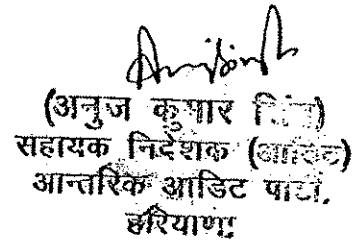 (अनुज कुमार सिंह)
सहायक निदेशक (आडिट)
आन्तरिक आडिट पार्टी,
हरियाणा